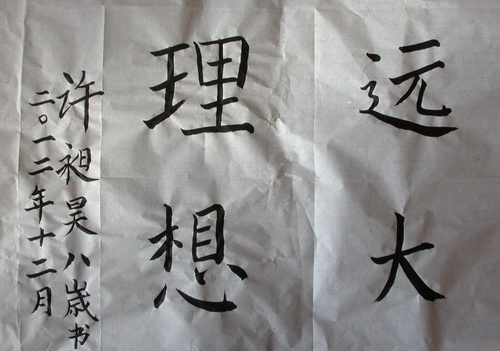 远大
理想
许昶昊八岁书
二〇一二年十二月